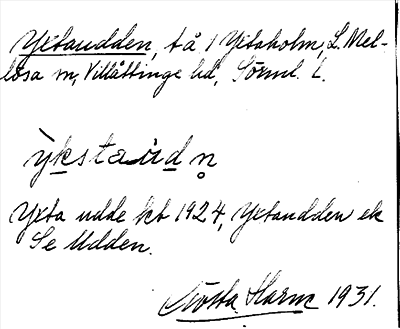 Yxtaudden, tå 1 Yxtaholm, L. Mel-
lösa sn, Villåttinge hd, Sörml. L.
ỳkstaùdn̥
Yxta udde kt 1924, Yxtaudden ek
Se Udden.
Gösta Harm 1931.